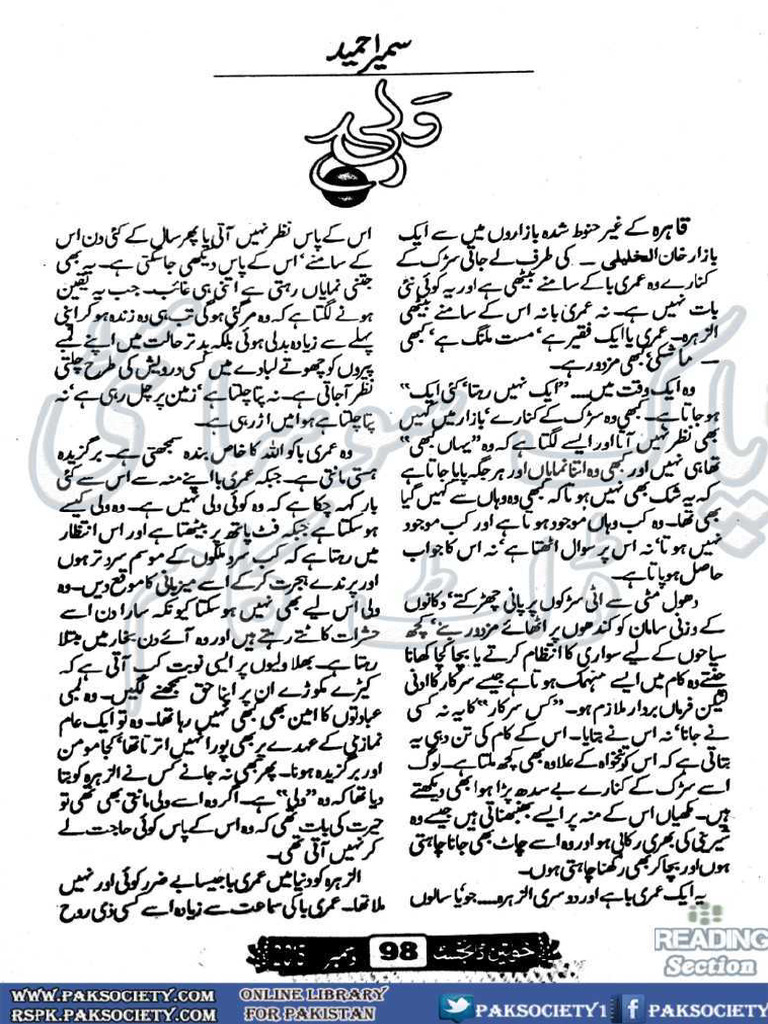 سمیرا حمید
ولی
قاہرہ کے غیر حنوط شدہ بازاروں میں سے ایک
بازار خان الخلیلی ۔ کی طرف لے جاتی سڑک کے
کنارے وہ عمری با کے سامنے بیٹھی ہے اور یہ کوئی نئی
بات نہیں ہے۔ نہ عمری با نہ اس کے سامنے بیٹھی
الزہرہ۔ عمری با ایک فقیر ہے، مست ملنگ ہے، کبھی
۔ ماشکی، کبھی مزدور ہے۔
وہ ایک وقت میں.... "ایک نہیں رہتا، کئی ایک"
ہو جاتا ہے۔ کبھی وہ سڑک کے کنارے، بازار میں کہیں
بھی نظر نہیں آتا اور ایسے لگتا ہے کہ وہ "یہاں کبھی"
تھا ہی نہیں اور کبھی وہ اتنا نمایاں اور ہر جگہ پایا جاتا ہے
کہ یہ شک بھی نہیں ہوتا کہ کبھی وہ وہاں سے کہیں گیا
بھی تھا۔ وہ کب وہاں موجود ہوتا ہے اور کب موجود
نہیں ہوتا، نہ اس پر سوال اٹھتا ہے، نہ اس کا جواب
حاصل ہو پاتا ہے۔
دھول مٹی سے اٹی سڑکوں پر پانی چھڑکتے، دکانوں
کے وزنی سامان کو کندھوں پر اٹھائے مزدور بنے، کچھ
سیاحوں کے لیے سواری کا انتظام کرتے یا بچا کچا کھانا
چنتے وہ کام میں ایسے منہمک ہوتا ہے جیسے سرکار کا ادنی
لیکن فرماں بردار ملازم ہو۔ "کس سرکار" کا یہ نہ کسی
نے جانا، نہ اس نے بتایا۔ اس کے کام کی تن دہی یہ
بتاتی ہے کہ اس کو تنخواہ کے علاوہ بھی کچھ ملتا ہے۔ لوگ
اسے سڑک کے کنارے بے سدھ پڑا ہوا بھی دیکھتے
ہیں۔ مکھیاں اس کے منہ پر ایسے بھنبھناتی ہیں جیسے وہ
شیرینی کی بھری رکابی ہو اور وہ اسے چاٹ بھی جانا چاہتی
ہوں اور بچا کر بھی رکھنا چاہتی ہوں۔
یہ ایک عمری با ہے اور دوسری الزہرہ.... جو یا سالوں
اس کے پاس نظر نہیں آتی یا پھر سال کے کئی دن اس
کے سامنے، اس کے پاس دیکھی جا سکتی ہے۔ یہ بھی
جتنی نمایاں رہتی ہے اتنی ہی غائب۔ جب یہ یقین
ہونے لگتا ہے کہ وہ مر گئی ہوگی تب ہی وہ زندہ ہو کر اپنی
پہلے سے زیادہ بدلی ہوئی بلکہ بدتر حالت میں اپنے لمبے
پیروں کو چھوتے لبادے میں کسی درویش کی طرح چلتی
نظر آجاتی ہے۔ نہ پتا چلتا ہے، زمین پر چل رہی ہے، نہ
پتا چلتا ہے ہوا میں اڑ رہی ہے۔
وہ عمری با کو اللہ کا خاص بندہ سمجھتی ہے۔ برگزیدہ
ہستی مانتی ہے۔ جبکہ عمری با اپنے منہ سے اس سے کئی
بار کہہ چکا ہے کہ وہ کوئی ولی نہیں ہے۔ وہ ولی کیسے
ہو سکتا ہے جبکہ فٹ پاتھ پر بیٹھتا ہے اور اس انتظار
میں رہتا ہے کہ کب سرد ملکوں کے موسم سرد تر ہوں
اور پرندے ہجرت کر کے اسے میزبانی کا موقع دیں۔ وہ
ولی اس لیے بھی نہیں ہو سکتا کیونکہ سارا دن اسے
حشرات کاٹتے رہتے ہیں اور وہ آئے دن بخار میں مبتلا
رہتا ہے۔ بھلا ولیوں پر ایسی نوبت کب آتی ہے کہ
کیڑے مکوڑے ان پر اپنا حق سمجھنے لگیں۔ وہ لمبی
عبادتوں کا امین بھی کبھی نہیں رہا تھا۔ وہ تو ایک عام
نمازی کے عہدے پر بھی پورا نہیں اترتا تھا، کجا مومن
اور برگزیدہ ہونا۔ پھر بھی نہ جانے کس نے الزہرہ کو بتا
دیا تھا کہ وہ "ولی" ہے۔ اگر وہ اسے ولی مانتی بھی تھی تو
حیرت کی بات تھی کہ وہ اس کے پاس کوئی حاجت لے
کر نہیں آتی تھی۔
الزہرہ کو دنیا میں عمری با جیسا بے ضرر کوئی اور نہیں
ملا تھا۔ عمری با کی سماعت سے زیادہ اسے کسی ذی روح
خواتین ڈائجسٹ 98 دسمبر 2015
READING
Section
WWW.PAKSOCIETY.COM
RSPK.PAKSOCIETY.COM
ONLINE LIBRARY
FOR PAKISTAN
PAKSOCIETY1
PAKSOCIETY
پاک سوسائٹی
ڈاٹ کام